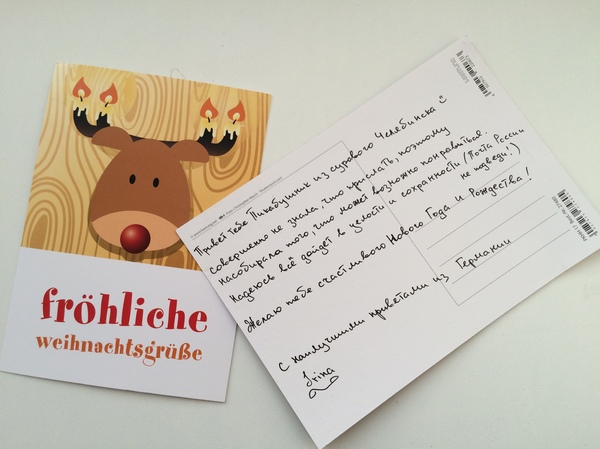 fröhliche
weihnachtsgrüße
Привет тебе Пикабушник из сурового Челябинска
совершенно не знала, что прислать, поэтому
насобирала того, что может возможно понравиться.
Надеюсь всё дойдет в целости и сохранности (Почта России
не подведи!)
Желаю тебе счастливого Нового Года и Рождества!
С наилучшими приветами из Германии
Irina